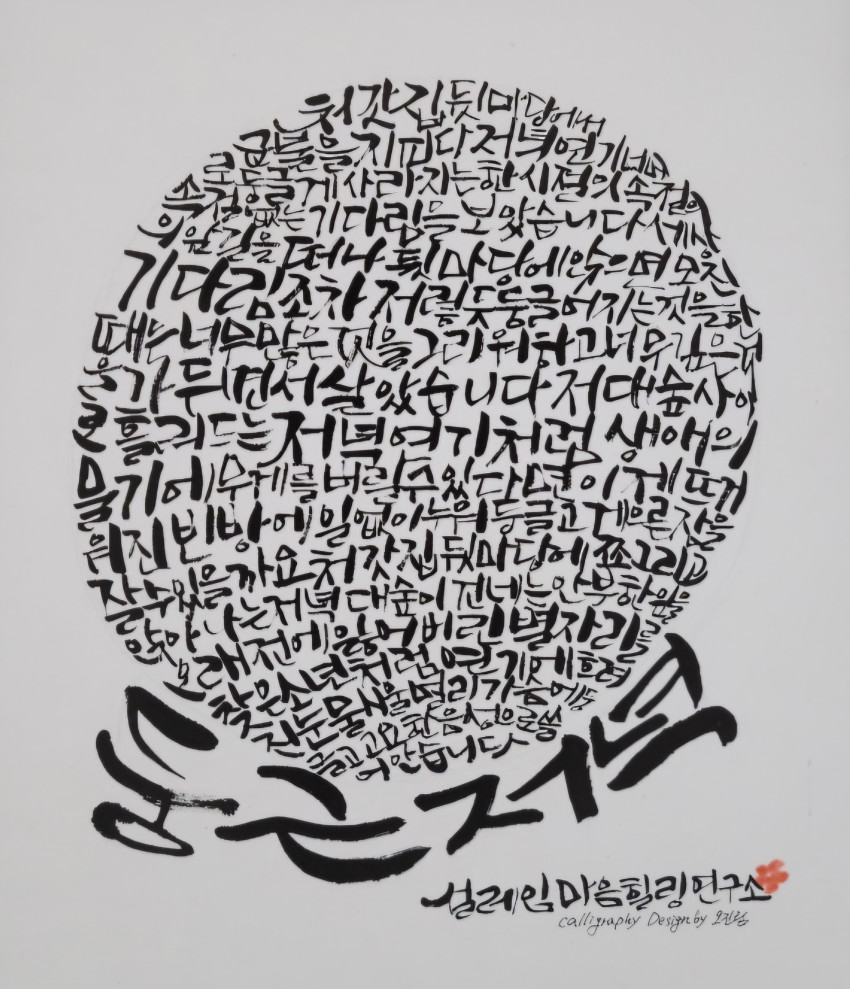 처갓집 뒷마당에서
군불을 지피다 저녁연기 너머
로 둥글게 사라지는 한 시절의 속절
속절없는 기다림을 보았습니다 세상
의 울림을 떠나 뒷마당에 앉으면 오랜
기다림조차 저릴듯 둥글어지는 것을 한
때는 너무 많은 것을 그리워하고 너무 깊은
가두면서 살았습니다 저 대숲 사이
로 흘러드는 저녁 연기처럼 생애의
물기에 무게를 버릴 수 있다면 이제
워진 빈방에 일없이 누워 둥글고 게으른 잠을
잘 수 있을까요 처갓집 뒷마당에 쪼그리고
앉아 나는 저녁 대숲이 건네는 안부 한
오래전에 잃어버린 별자리를
찾은 소년처럼 연기에 흐려
진 눈물 매운 머리 가슴에
둥글고 고요한 음성으로 쓸
어안습니다
둥근 저녁
설레임마음힐링연구소
calligraphy Design by 오진림